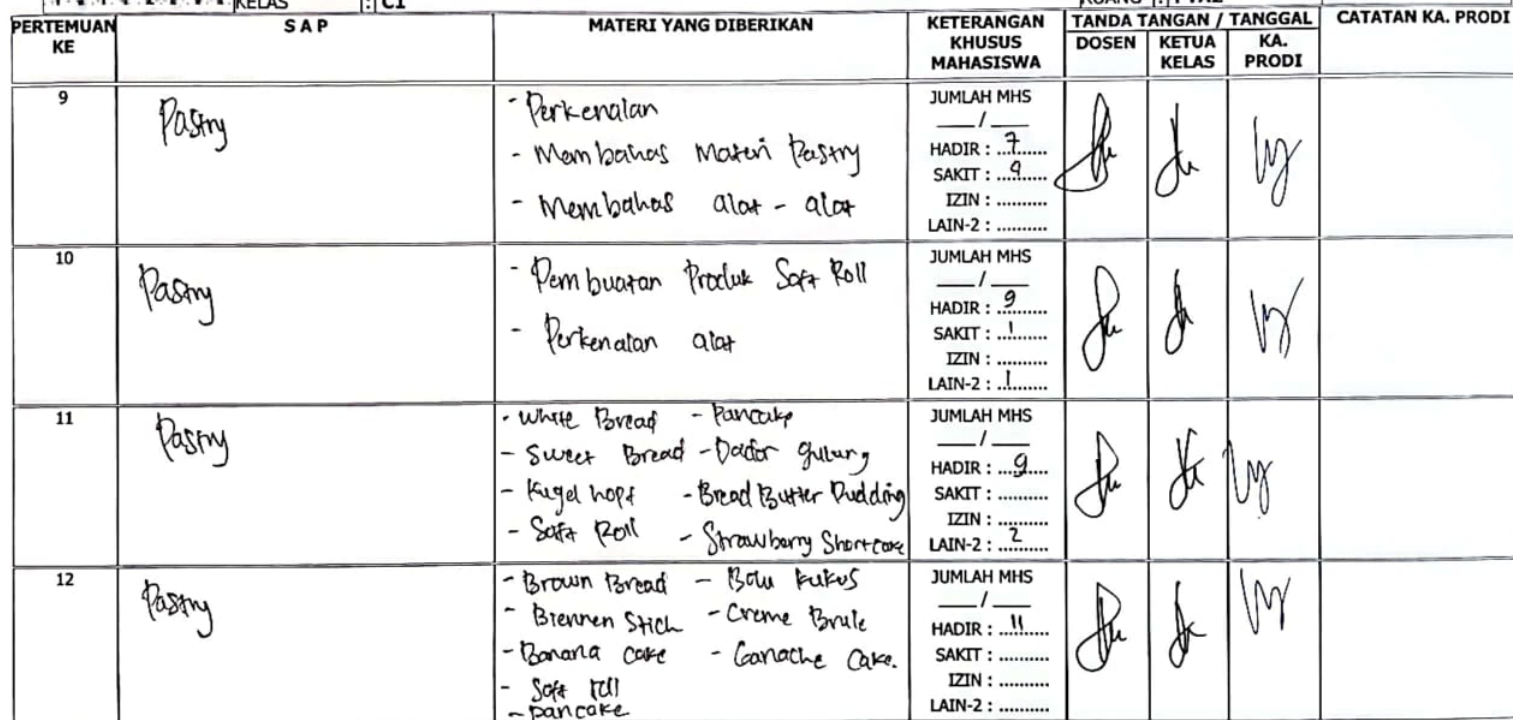 KELAS : C1
RUANG :
PERTEMUAN KE SAP MATERI YANG DIBERIKAN KETERANGAN KHUSUS MAHASISWA TANDA TANGAN / TANGGAL CATATAN KA. PRODI
DOSEN KETUA KELAS KA. PRODI
9 Pastry
- Perkenalan
- Membahas Materi Pastry
- Membahas alat - alat
JUMLAH MHS
___/___
HADIR : ...7.......
SAKIT : ...9......
IZIN : ..........
LAIN-2 : ..........
10 Pastry
- Pembuatan Produk Soft Roll
- Perkenalan alat
JUMLAH MHS
___/___
HADIR : .9.........
SAKIT : ..1.......
IZIN : ..........
LAIN-2 : ..1.......
11 Pastry
- White Bread - Pancake
- Sweet Bread - Dador gulung
- Kugel hopf - Bread Butter Pudding
- Soft Roll - Strawberry Shortcake
JUMLAH MHS
___/___
HADIR : ....9....
SAKIT : ..........
IZIN : ..........
LAIN-2 : ..2........
12 Pastry
- Brown Bread - Bolu kukus
- Biennen Stich - Creme Brule
- Banana cake - Ganache Cake.
- Soft roll
- pancake
JUMLAH MHS
___/___
HADIR : ..11.......
SAKIT : ..........
IZIN : ..........
LAIN-2 : ..........